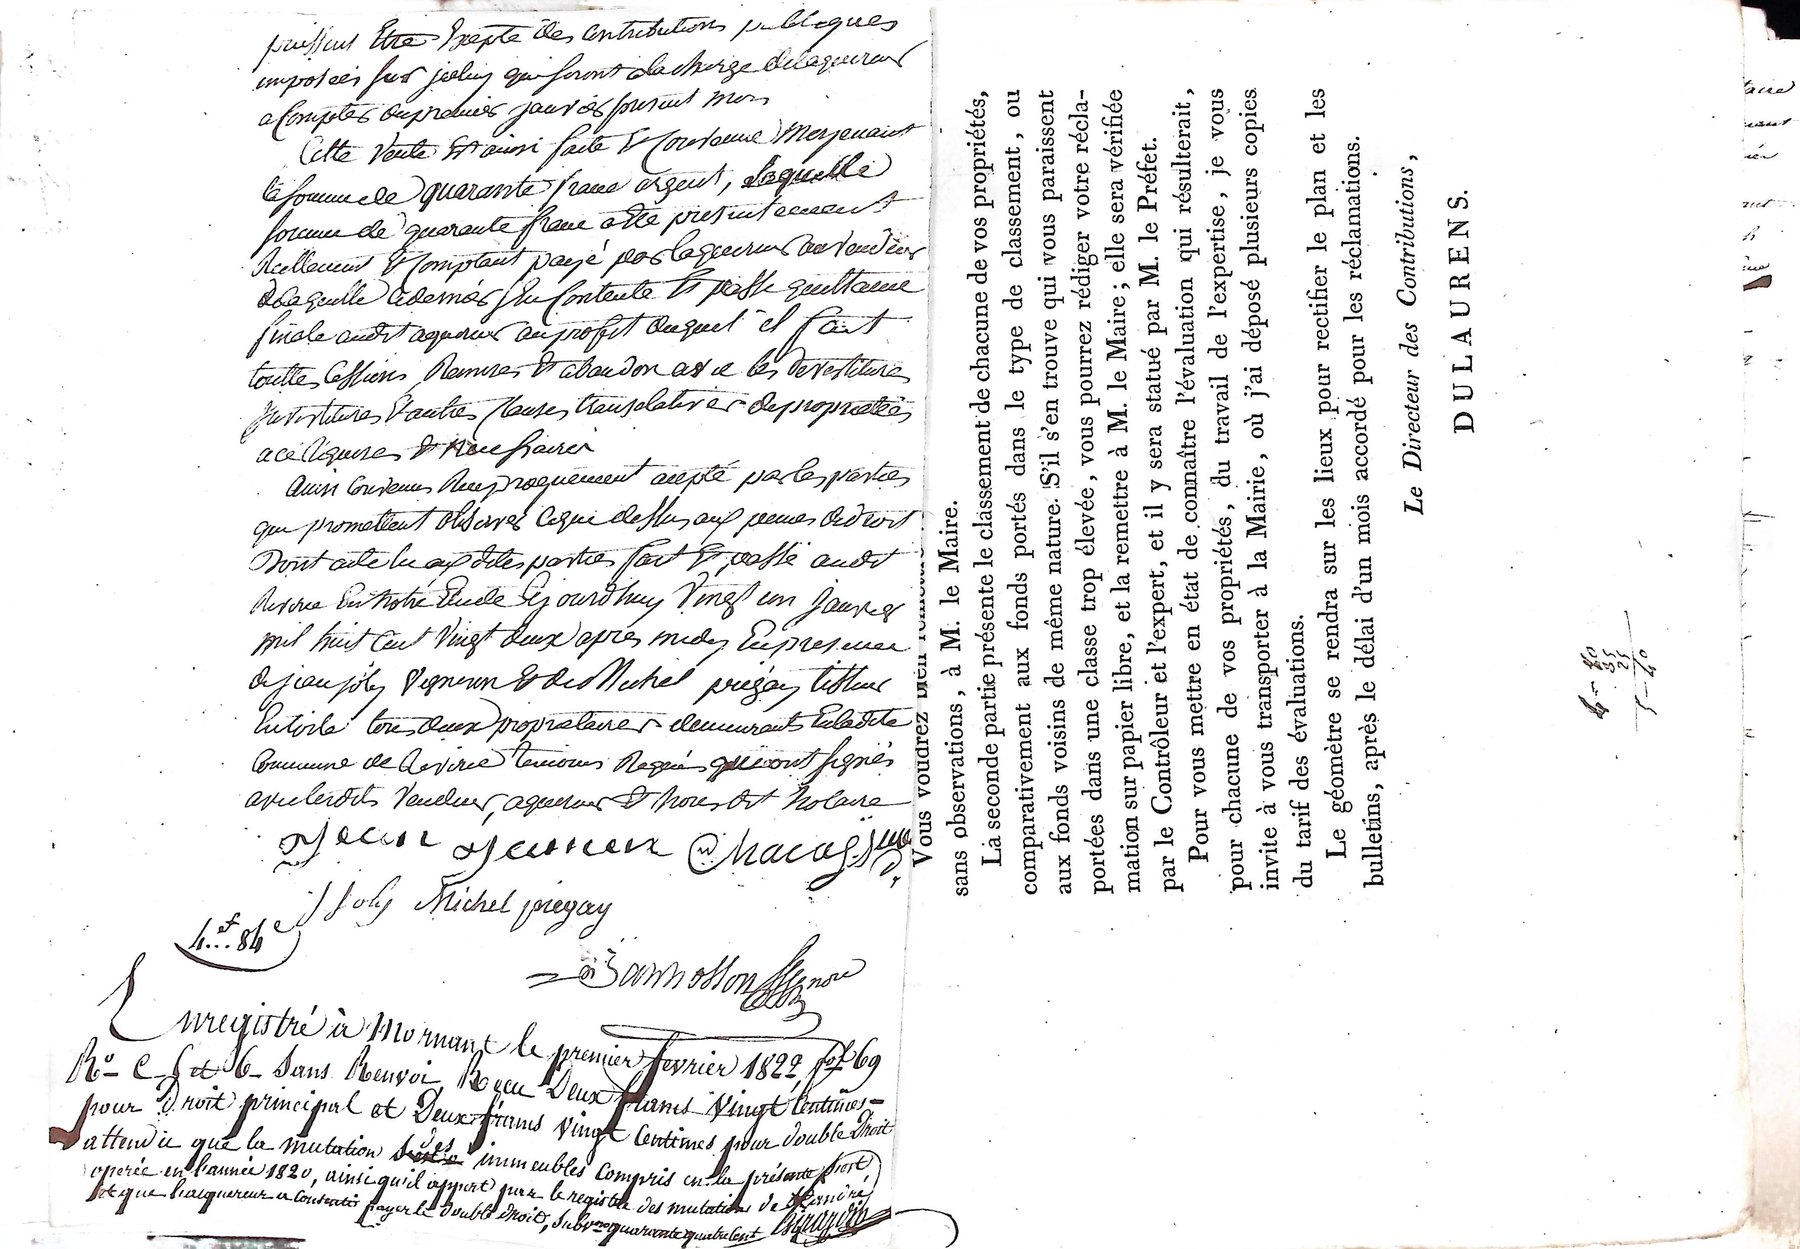 puissent Etre Exepté des Contributions publiques
imposées sur jceluy qui seront alacharge delaquereur
a Compter du premier janvier present mois
Cette Vente Est ainsi faite & Convenue Moyenant
la somme de quarante franc argent, laquelle
somme de quarante franc a Eté presentement
Reellement & Comptant payé par laquereur au vendeur
delaquelle cedernier sen Contente & passe quittance
finale audit aquereur auproffit duquel il fait
touttes Cessions Remises & abandon avec les devestitures
Investitures & autres Clauses translatives depropriettés
ace Requises & necessaires
Ainsi Convenus Reciproquement acepté par les parties
qui promettent observer Cequi dessus aux peines dedroit
Dont acte lu aux dites parties fait & passé audit
Riverie En Notre Etude Cejourdhuy Vingt un Janvier
mil huit Cent Vingt deux apres midy En presence
de jean joly Vigneron & de Michel priégay tisseur
En toile tous deux propriétaires demeurants En ladite
Commune de Riverie temoins Requis qui ont signés
avec lesdits Vendeur, aquereur & Nous dit Notaire
Jean Chavas
J Joly Michel priegay
4 f 84 c
Enregistré à Mornant le premier fevrier 1822, fol 69
Ro C 5 et 6 Sans Renvoi, Reçu Deux francs Vingt Centimes
pour Droit principal et Deux francs Vingt Centimes pour double Droit
attendu que la mutation des immeubles compris en la présente s'est
operée en l'année 1820, ainsi qu'il appert par le registre des mutations de
et que l'acquereur a Consenti payer le double droit, Subvon quarante quatre Cent
Girardin
Vous voudrez bien
sans observations, à M. le Maire.
La seconde partie présente le classement de chacune de vos propriétés,
comparativement aux fonds portés dans le type de classement, ou
aux fonds voisins de même nature. S'il s'en trouve qui vous paraissent
portées dans une classe trop élevée, vous pourrez rédiger votre récla-
mation sur papier libre, et la remettre à M. le Maire ; elle sera vérifiée
par le Contrôleur et l'expert, et il y sera statué par M. le Préfet.
Pour vous mettre en état de connaître l'évaluation qui résulterait,
pour chacune de vos propriétés, du travail de l'expertise, je vous
invite à vous transporter à la Mairie, où j'ai déposé plusieurs copies
du tarif des évaluations.
Le géomètre se rendra sur les lieux pour rectifier le plan et les
bulletins, après le délai d'un mois accordé pour les réclamations.
Le Directeur des Contributions,
DULAURENS.